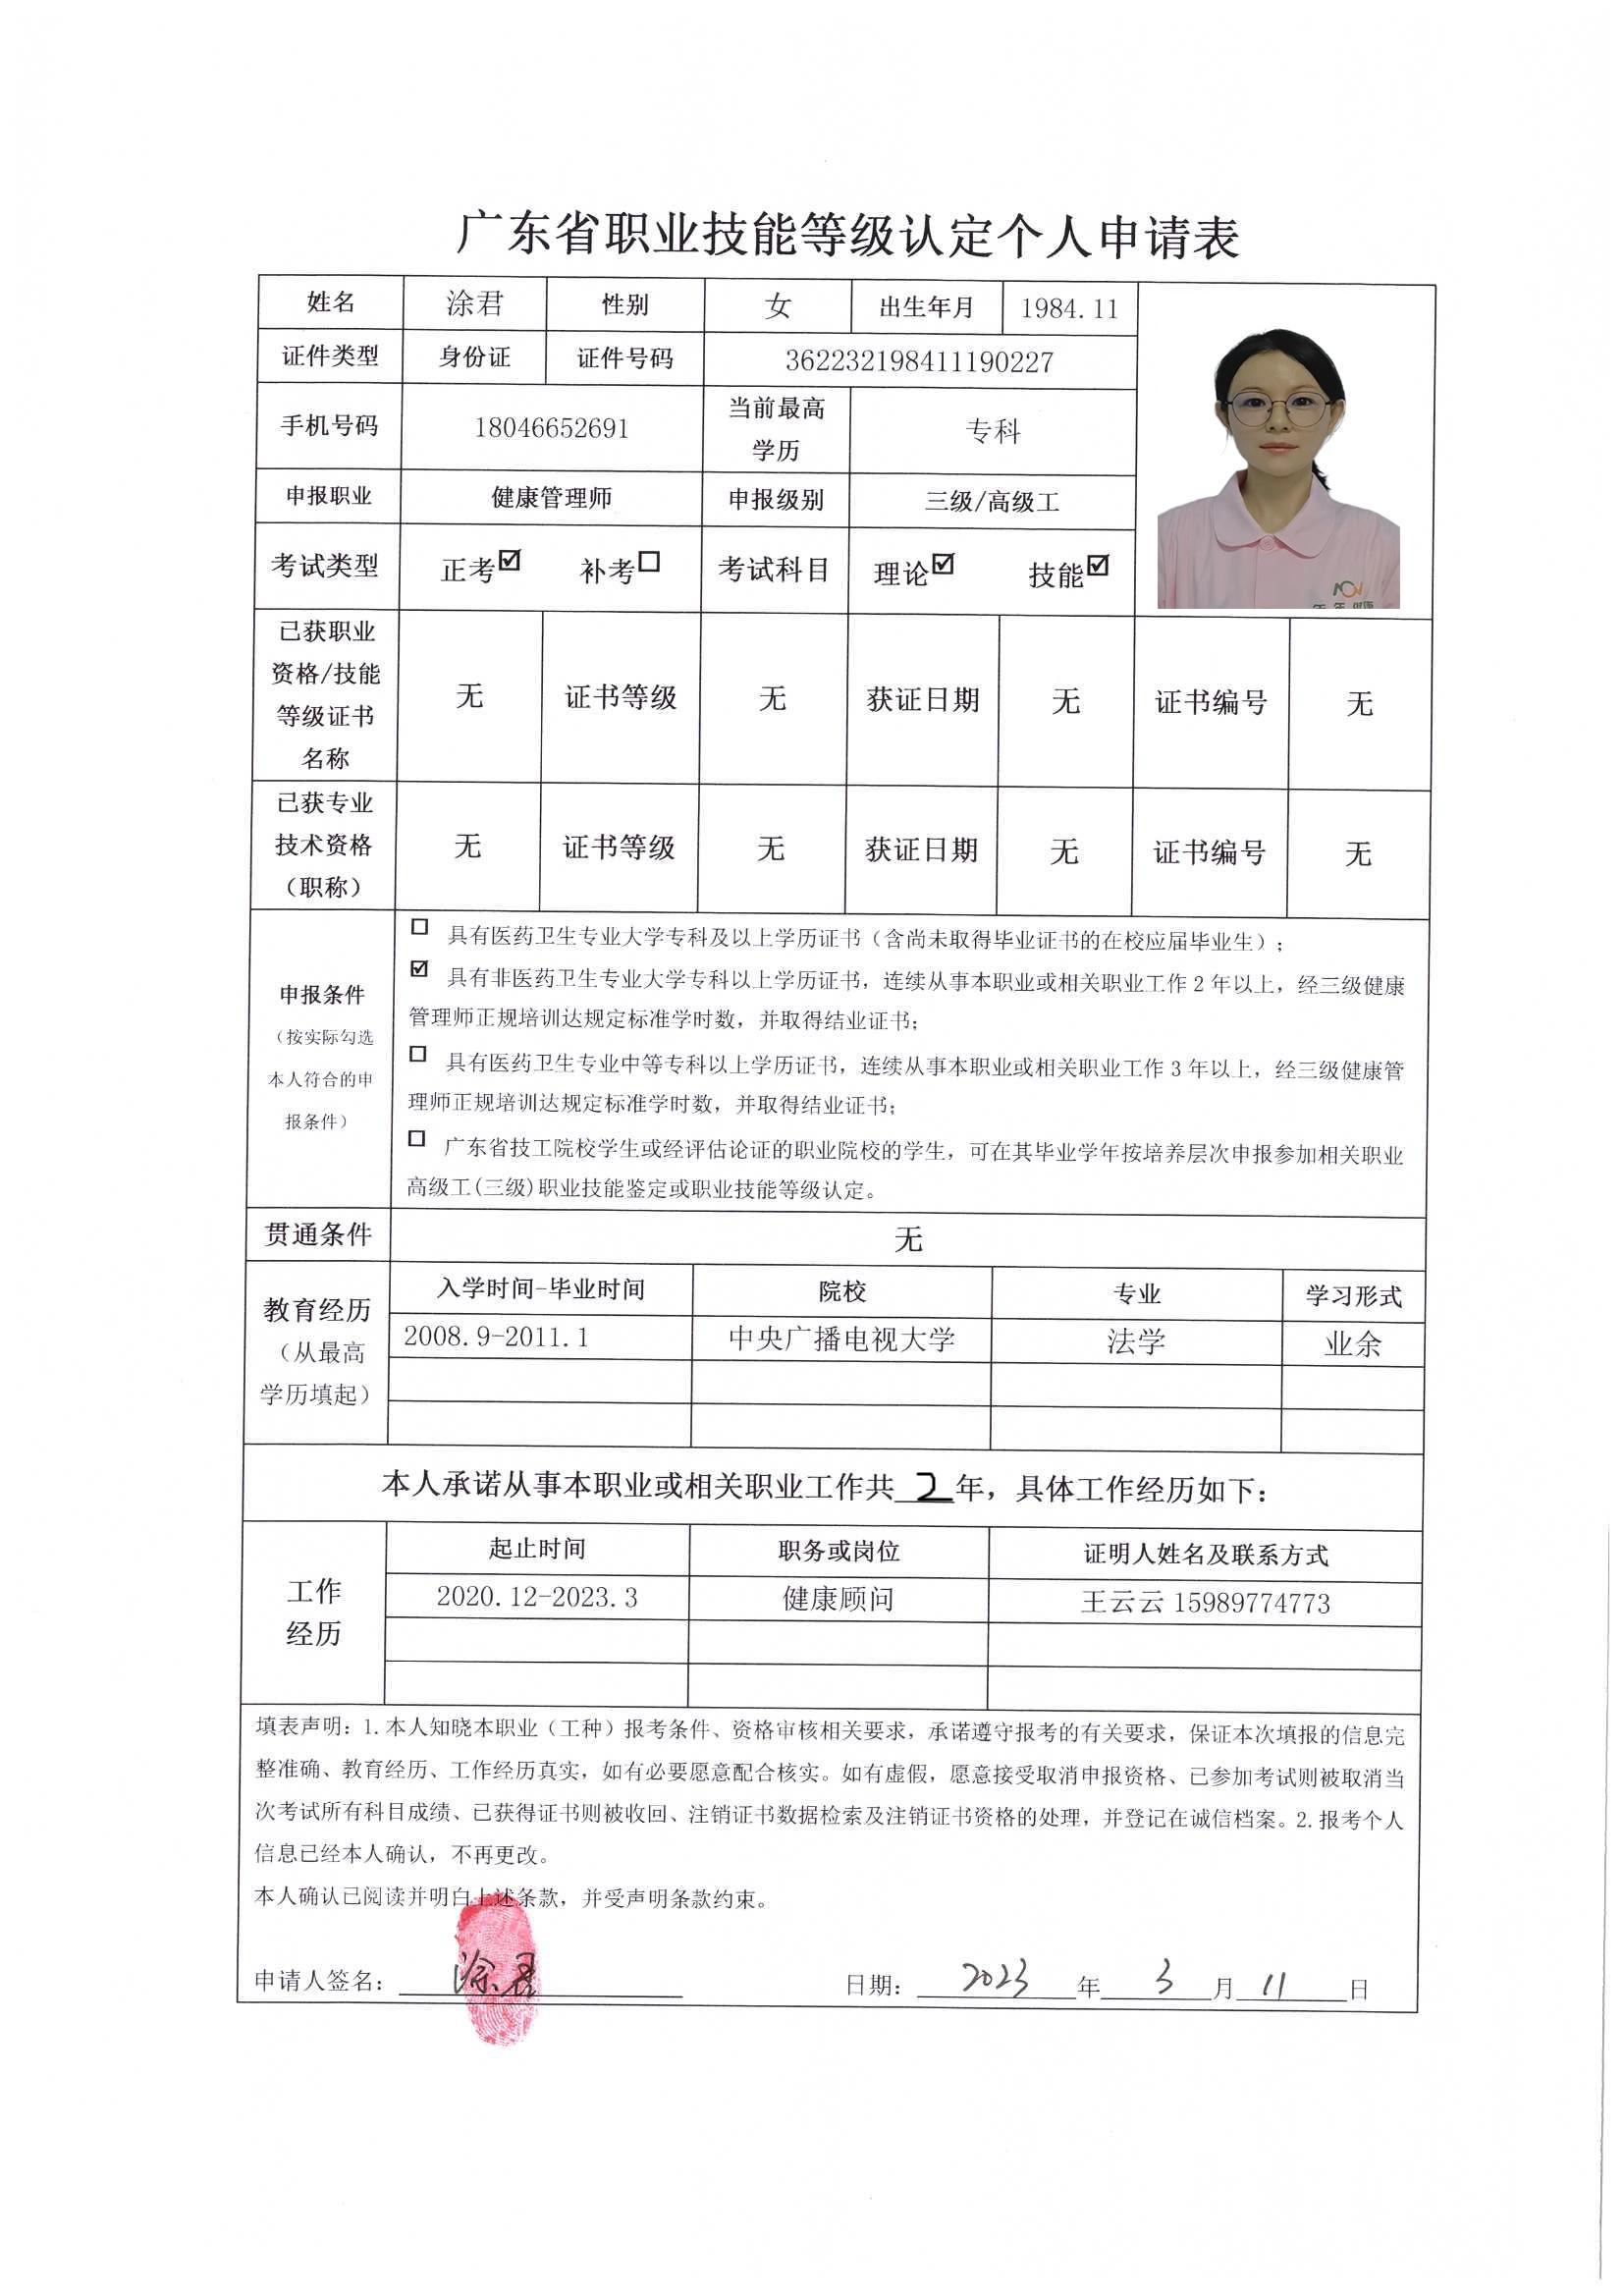 广东省职业技能等级认定个人申请表
姓名 涂君 性别 女 出生年月 1984.11
证件类型 身份证 证件号码 362232198411190227
手机号码 18046652691 当前最高学历 专科
申报职业 健康管理师 申报级别 三级/高级工
考试类型 正考☑ 补考☐ 考试科目 理论☑ 技能☑
已获职业资格/技能等级证书名称 无 证书等级 无 获证日期 无 证书编号 无
已获专业技术资格（职称） 无 证书等级 无 获证日期 无 证书编号 无
申报条件
（按实际勾选本人符合的申报条件）
☐ 具有医药卫生专业大学专科及以上学历证书（含尚未取得毕业证书的在校应届毕业生）；
☑ 具有非医药卫生专业大学专科以上学历证书，连续从事本职业或相关职业工作 2 年以上，经三级健康
管理师正规培训达规定标准学时数，并取得结业证书；
☐ 具有医药卫生专业中等专科以上学历证书，连续从事本职业或相关职业工作 3 年以上，经三级健康管
理师正规培训达规定标准学时数，并取得结业证书；
☐ 广东省技工院校学生或经评估论证的职业院校的学生，可在其毕业学年按培养层次申报参加相关职业
高级工(三级)职业技能鉴定或职业技能等级认定。
贯通条件 无
教育经历
（从最高学历填起）
入学时间-毕业时间 院校 专业 学习形式
2008.9-2011.1 中央广播电视大学 法学 业余
本人承诺从事本职业或相关职业工作共 2 年，具体工作经历如下：
工作经历
起止时间 职务或岗位 证明人姓名及联系方式
2020.12-2023.3 健康顾问 王云云 15989774773
填表声明：1.本人知晓本职业（工种）报考条件、资格审核相关要求，承诺遵守报考的有关要求，保证本次填报的信息完
整准确、教育经历、工作经历真实，如有必要愿意配合核实。如有虚假，愿意接受取消申报资格、已参加考试则被取消当
次考试所有科目成绩、已获得证书则被收回、注销证书数据检索及注销证书资格的处理，并登记在诚信档案。2.报考个人
信息已经本人确认，不再更改。
本人确认已阅读并明白上述条款，并受声明条款约束。
申请人签名： 涂君 日期： 2023 年 3 月 11 日